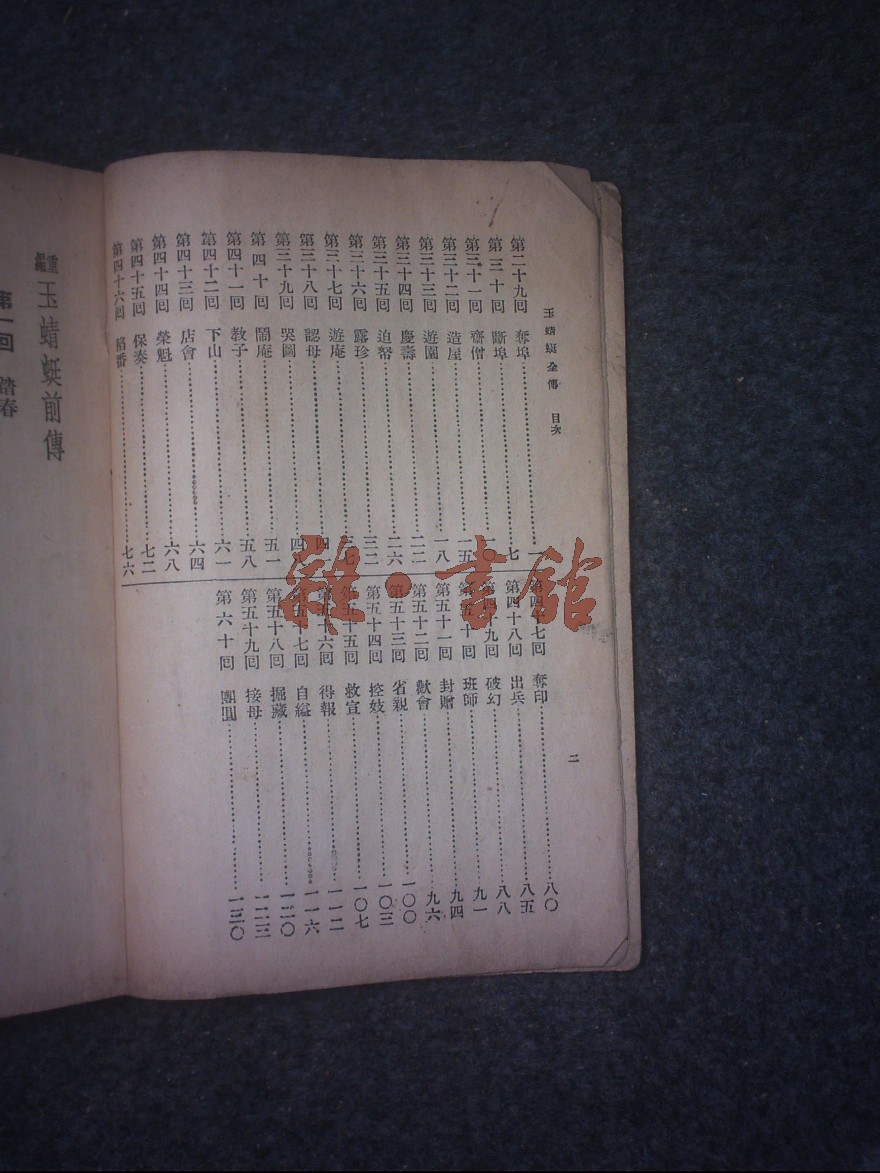 玉蜻蜓全傳 目次
第二十九回 奪埠 一
第三十回 斷埠 七
第三十一回 齋僧 一〇
第三十二回 造屋 一五
第三十三回 遊園 一八
第三十四回 慶壽 二二
第三十五回 迫帑 二六
第三十六回 露珍 三二
第三十七回 遊庵
第三十八回 認母
第三十九回 哭圖
第四十回 鬧庵 五一
第四十一回 教子 五八
第四十二回 下山 六一
第四十三回 店會 六四
第四十四回 榮魁 六八
第四十五回 保奏 七二
第四十六回 招番 七六
第四十七回 奪印 八〇
第四十八回 出兵 八五
第四十九回 破幻 八八
第五十回 班師 九一
第五十一回 封贈 九四
第五十二回 歡會 九六
第五十三回 省親 一〇〇
第五十四回 控妓 一〇三
第五十五回 救宣 一〇七
第五十六回 得報 一一二
第五十七回 自縊 一一六
第五十八回 掘藏 一二〇
第五十九回 接母 一二三
第六十回 團圓 一三〇
二
重編 玉蜻蜓前傳
第一回 踏春
雜·書館